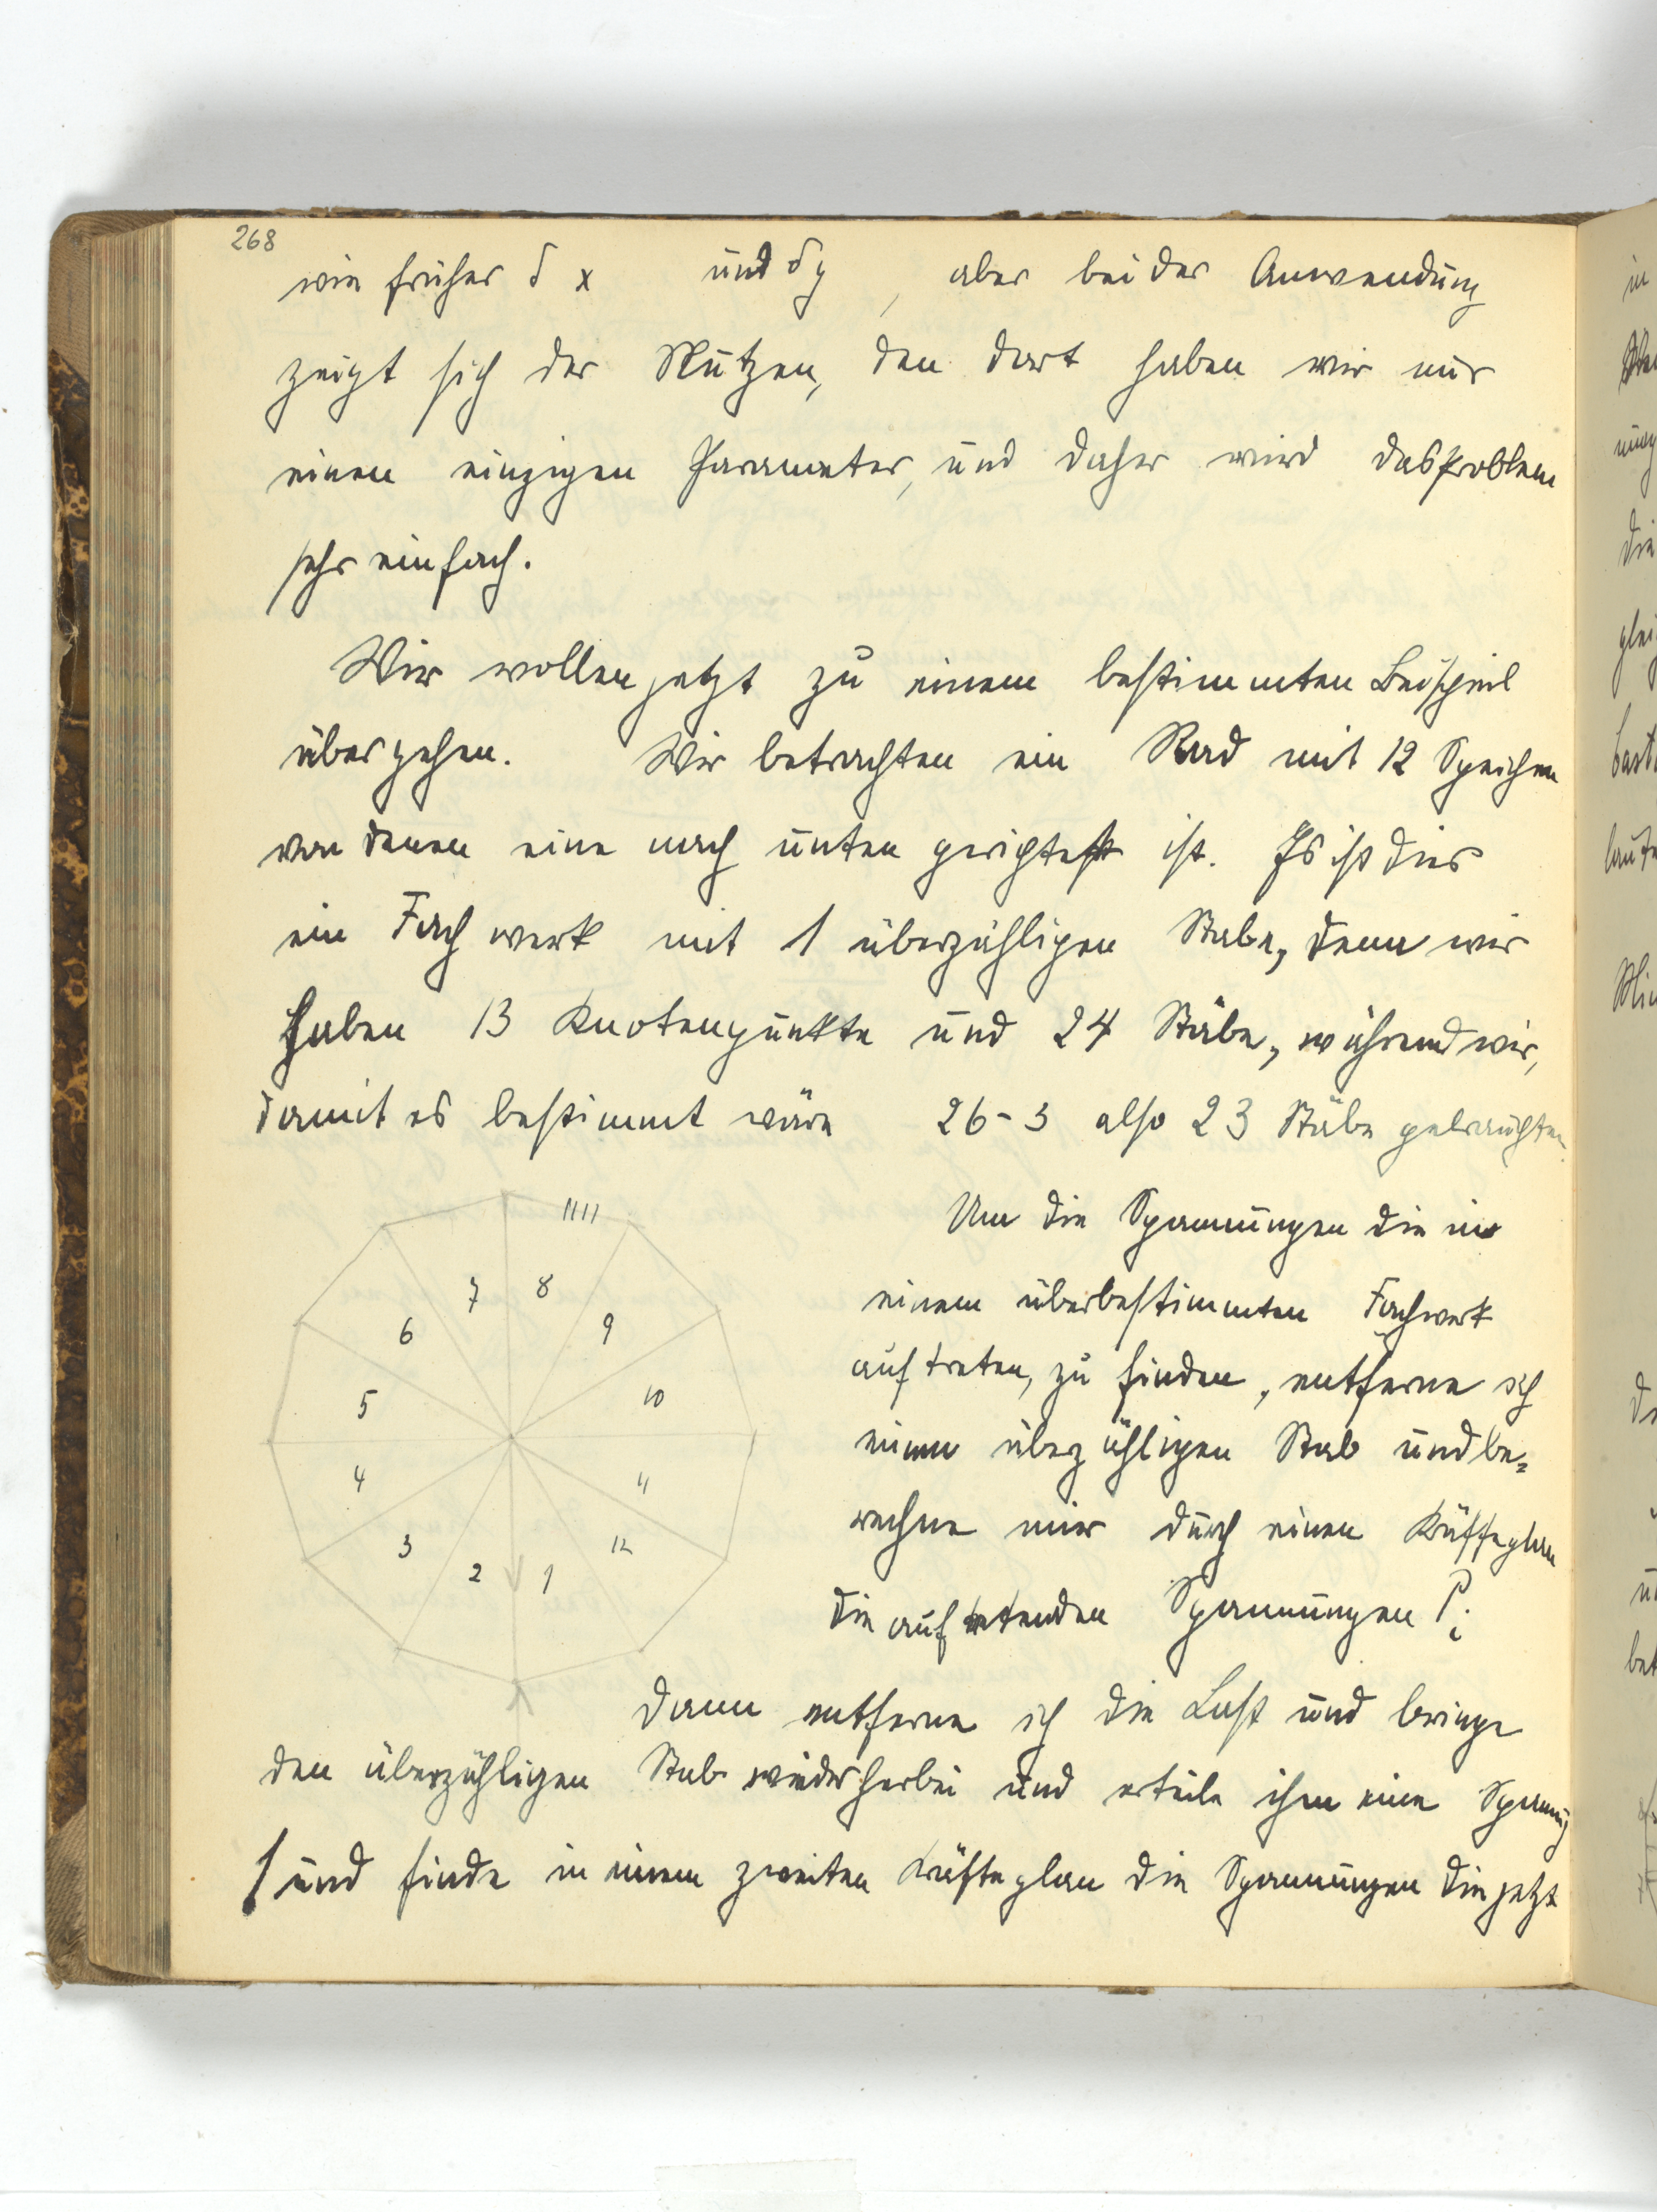 268
wie früher δ x und δ y , aber bei der Anwendung
zeigt sich der Nutzen, den dort haben wir nur
einen einzigen Parameter, und daher wird das Problem
sehr einfach.
Wir wollen jetzt zu einem bestimmten Beispiel
übergehen. Wir betrachten ein Rad mit 12 Speichen
von denen eine nach unten gerichtet ist. Es ist dies
ein Fachwerk mit 1 überzähligen Stabe, denn wir
haben 13 Knotenpunkte und 24 Stäbe, während wir,
damit es bestimmt wäre 26-3 also 23 Stäbe gebrauchten.
Um die Spannungen die in
einem überbestimmten Fachwerk
auftreten, zu finden, entferne ich
einen überzähligen Stab und be=
rechne mir durch einen Kräfteplan
die auftretenden Spannungen P_i
Dann entferne ich die Last und bringe
den überzähligen Stab wieder herbei und erteile ihm eine Spannung
1 und finde in einem zweiten Kräfteplan die Spannungen die jetzt
7 8
6 9
5 10
4 11
3 12
2 1